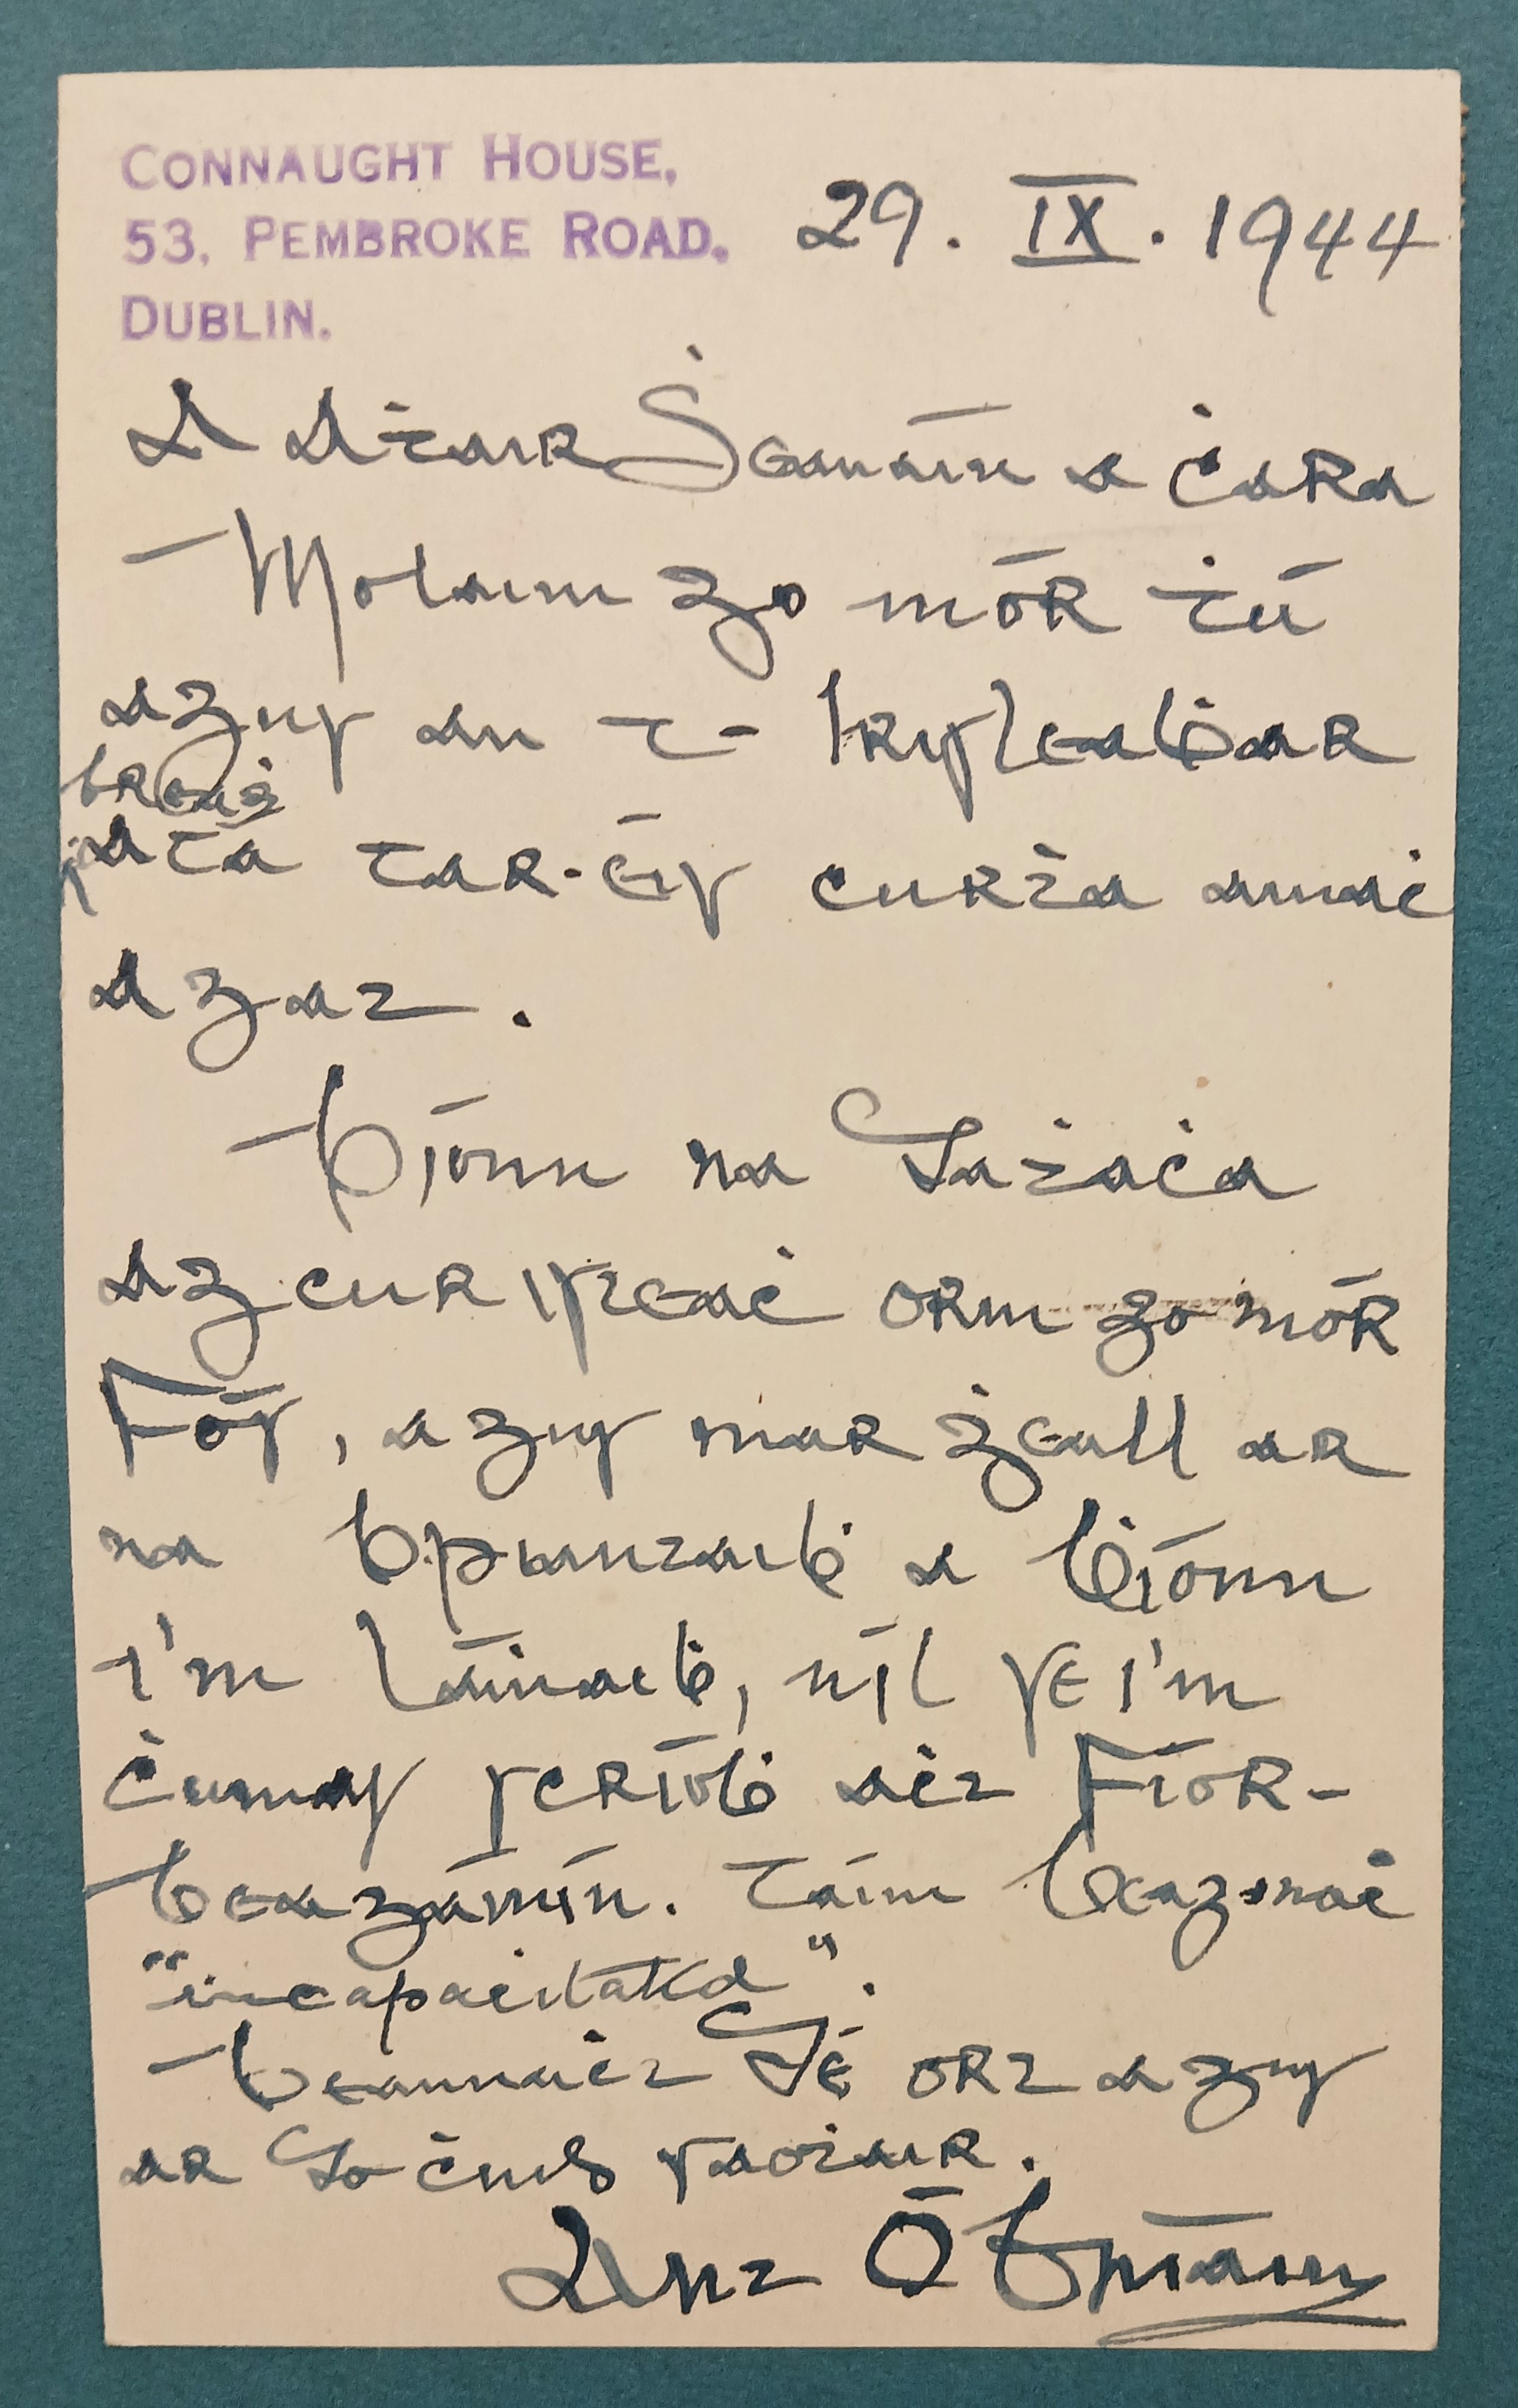 CONNAUGHT HOUSE,
53, PEMBROKE ROAD,
DUBLIN.
29. IX. 1944
A Aṫair Ṡeanáin a ċara
Molaim go mór ṫú
agus an t-Irisleaḃar
breáġ
atá tar-éis curṫa amaċ
agat.
Bíonn na Daṫaċa
ag cur isteaċ orm go mór
fós, agus mar ġeall ar
na bpiantaiḃ a ḃíonn
i'm láṁaiḃ, níl se i'm
ċumas scríoḃ aċt fíor-
beagáinín. Táim beagnaċ
"incapacitated".
Beannaċt Dé ort agus
ar do ċuid saoṫair.
Art Ó Briain